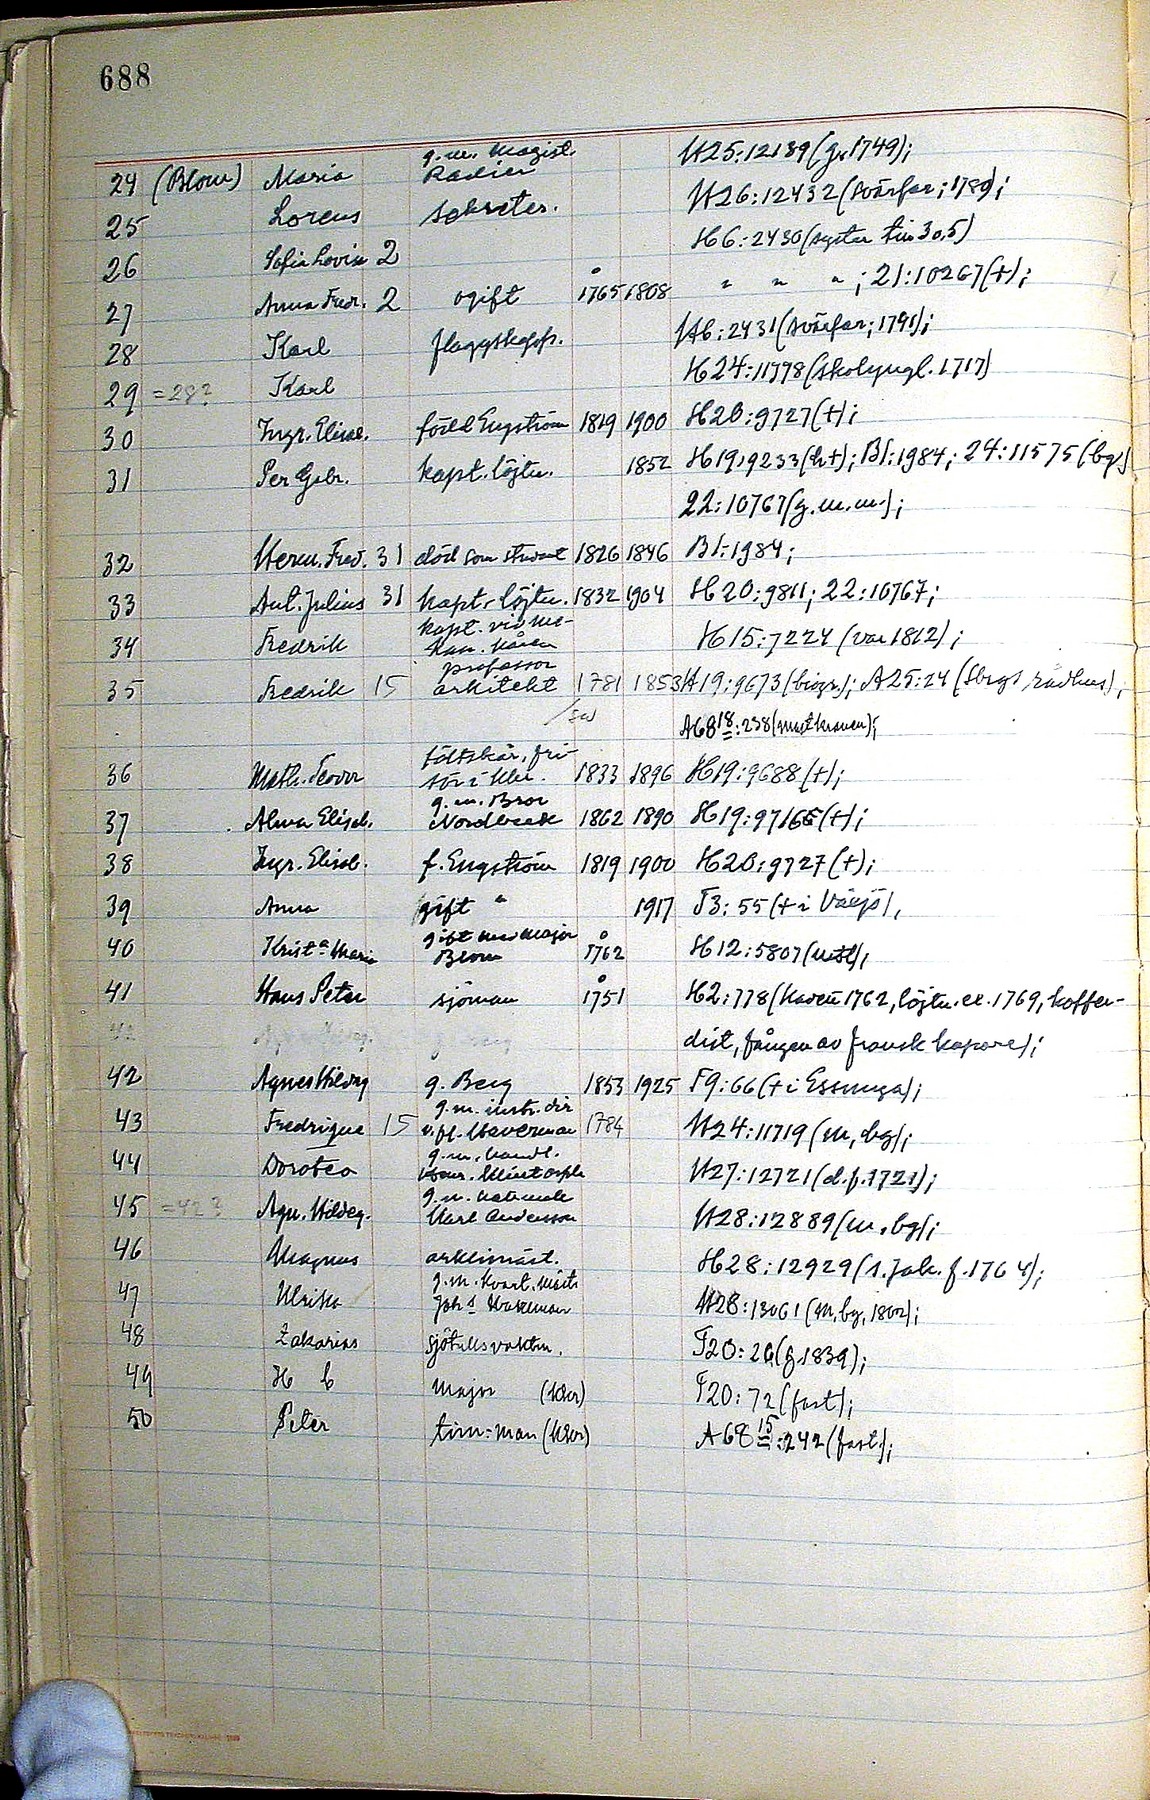 688
24 (Blom) Maria g.m. Magist. Radier H25:12189 (g.1749);
25 Lorens sekreter. H26:12432 (svärfar; 1780);
26 Sofia Lovisa 2 H6:2430 (syster till 3 o, 5)
27 Anna Fredr. 2 ogift 1765 1808 " " " ; 21:10267 (+);
28 Karl flaggskepp. H6:2431 (svärfar; 1791);
29 =28? Karl H24:11798 (skolyngl. 1717)
30 Ingr. Elisab. född Engström 1819 1900 H20:9727 (+);
31 Per Gabr. kapt. löjtn. 1852 H19:9233 (h+); Bl:1984; 24:11575 (bg)
22:10767 (g.m.m.);
32 Herm. Fred. 31 död som student 1826 1846 Bl:1984;
33 Ant. Julius 31 kapt. löjtn. 1832 1904 H20:9811; 22:10767;
34 Fredrik kapt. vid me-kan. kåren H15:7224 (var 1812);
35 Fredrik 15 professor arkitekt 1781 1853 H19:9673 (biogr.); A25:24 (Sbgs rådhus);
A68 18:238
36 Math. fältskär, fri-sör i 1833 1896 H19:9688 (+);
37 Alma Elisab. g.m. Bror 1862 1890 H19:97166 (+);
38 Ingr. Elisab. f. Engström 1819 1900 H20:9727 (+);
39 Anna gift " 1917 T3:55 (+ i Växjö),
40 Krist:a Maria gift med major Blom 1762 H12:5807
41 Hans Peter sjöman 1751 H2:778 (kadett 1762, löjtn. ex. 1769, koffer-
dist, fången av fransk kapare);
42 Agnes Hildeg g. Berg 1853 1925 T9:66 (+ i Essunga);
43 Fredrique 15 g.m. instr. dir v. pl. Haverman 1784 H24:11719 (m, bg);
44 Dorotea g.m. handl. H27:12721 (d.f. 1721);
45 =42? Agn. Hildeg. g.m. Karl Andersson H28:12889 (m, bg);
46 Magnus arklimäst. H28:12929 (s. Jak. f. 1764);
47 Ulrika g.m. kvart. mäst. Joh:s H28:13061 (m, bg, 1802);
48 Zakarias sjötullsvaktm. T20:26 (g. 1839);
49 H C major (Kkr) T20:72 (fast);
50 Peter tim-man (Kkr) A68 15:242 (fast.);